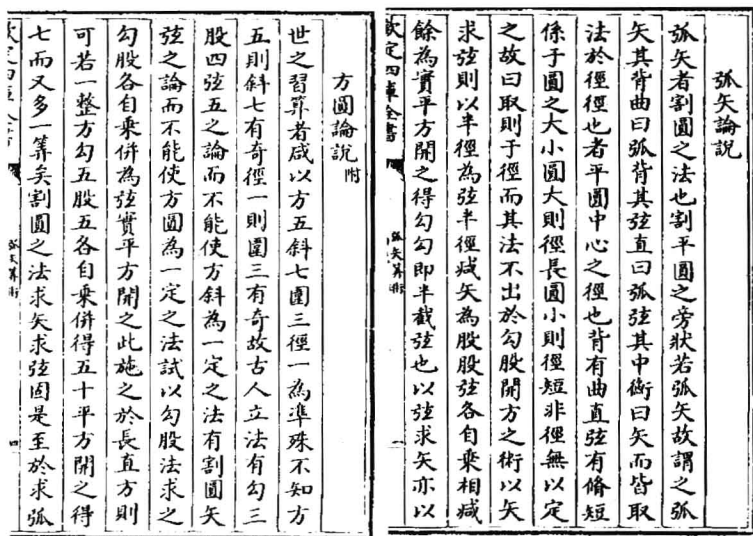 弧矢論說
弧矢者割圓之法也割平圓之旁狀若弧矢故謂之弧
矢其背曲曰弧背其弦直曰弧弦其中衡曰矢而皆取
法於徑徑也者平圓中心之徑也背有曲直弦有脩短
係于圓之大小圓大則徑長圓小則徑短非徑無以定
之故曰取則于徑而其法不出於勾股開方之術以矢
求弦則以半徑為弦半徑減矢為股股弦各自乗相減
餘為實平方開之得勾勾即半截弦也以弦求矢亦以
欽定四庫全書
弧矢算術
一
方圓論說附
世之習算者咸以方五斜七圍三徑一為準殊不知方
五則斜七有奇徑一則圍三有奇故古人立法有勾三
股四弦五之論而不能使方斜為一定之法有割圓矢
弦之論而不能使方圓為一定之法試以勾股法求之
勾股各自乗併為弦實平方開之此施之於長直方則
可若一整方勾五股五各自乗併得五十平方開之得
七而又多一筭矣割圓之法求矢求弦固是至於求弧
欽定四庫全書
弧矢算術
四